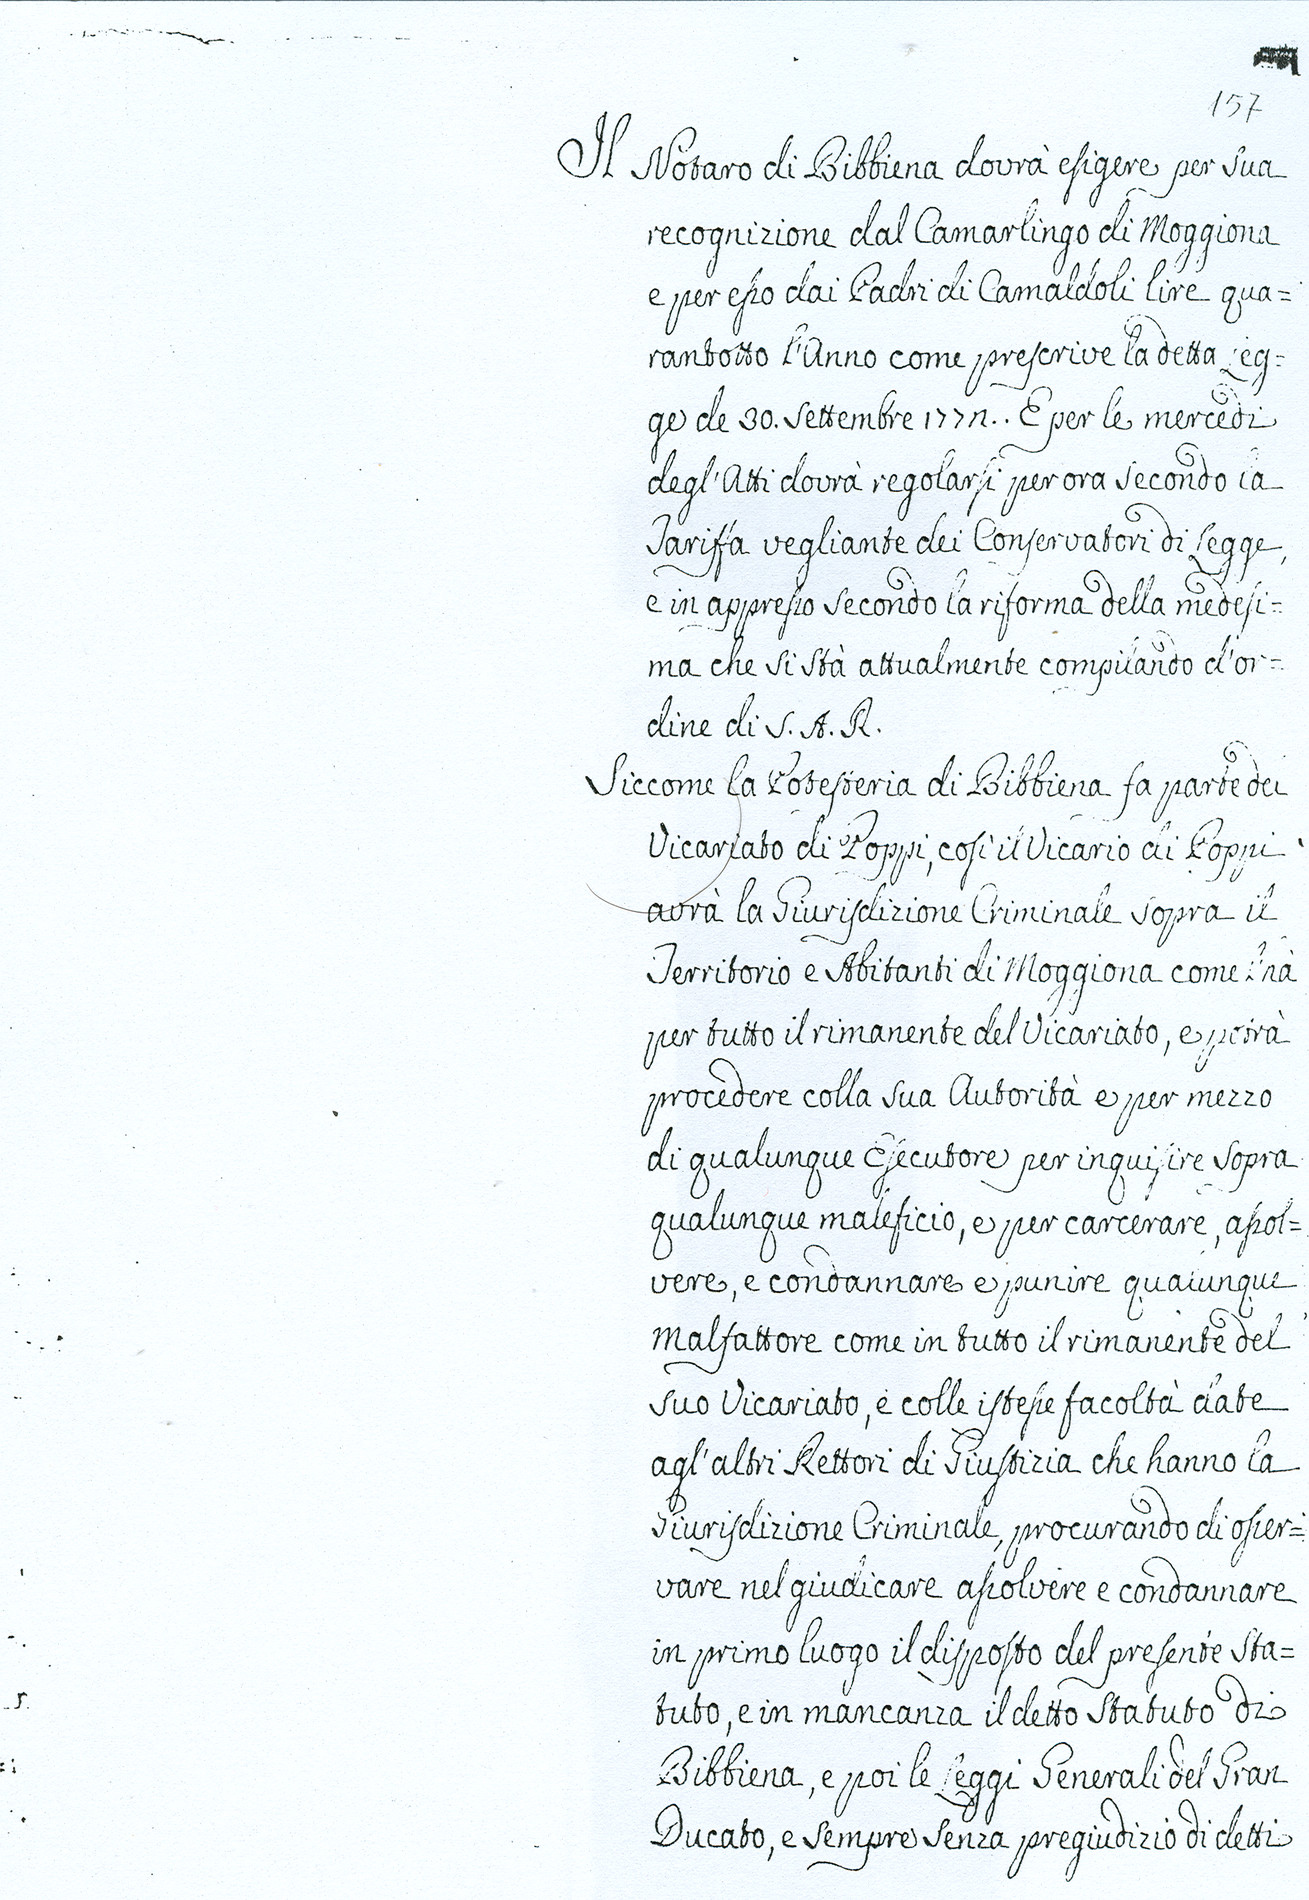 157
Il Notaro di Bibbiena dovrà esigere per sua
recognizione dal Camarlingo di Moggiona
e per esso dai Padri di Camaldoli lire qua=
rantotto l'Anno come prescrive la detta Leg=
ge de 30. Settembre 1772.. E per le mercedi
degl'Atti dovrà regolarsi per ora secondo la
Tariffa vegliante dei Conservatori di Legge,
e in appresso secondo la riforma della medesi=
ma che si stà attualmente compilando d'or=
dine di S. A. R.
Siccome la Potesteria di Bibbiena fa parte del
Vicariato di Poppi, così il Vicario di Poppi
avrà la Giurisdizione Criminale sopra il
Territorio e Abitanti di Moggiona come l'hà
per tutto il rimanente del Vicariato, e potrà
procedere colla sua Autorità e per mezzo
di qualunque Esecutore per inquisire sopra
qualunque maleficio, e per carcerare, assol=
vere, e condannare e punire qualunque
Malfattore come in tutto il rimanente del
suo Vicariato, e colle istesse facoltà date
agl'altri Rettori di Giustizia che hanno la
Giurisdizione Criminale, procurando di osser=
vare nel giudicare assolvere e condannare
in primo luogo il disposto del presente Sta=
tuto, e in mancanza il detto Statuto di
Bibbiena, e poi le Leggi Generali del Gran
Ducato, e sempre senza pregiudizio di detti